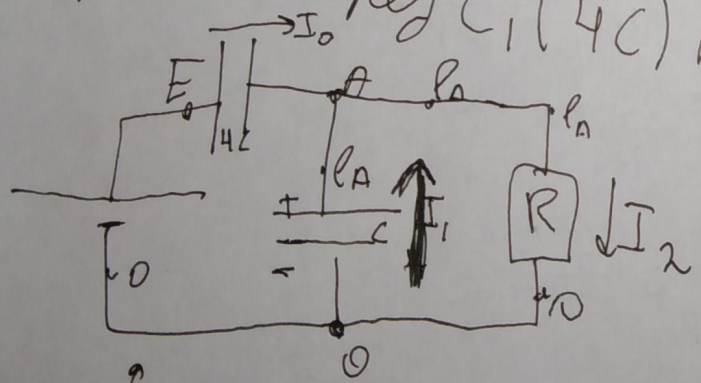 C₁(4C)
I₀
E
4C
A
φA
φA
φA
+
C
-
I₁
R
I₂
0
0
0